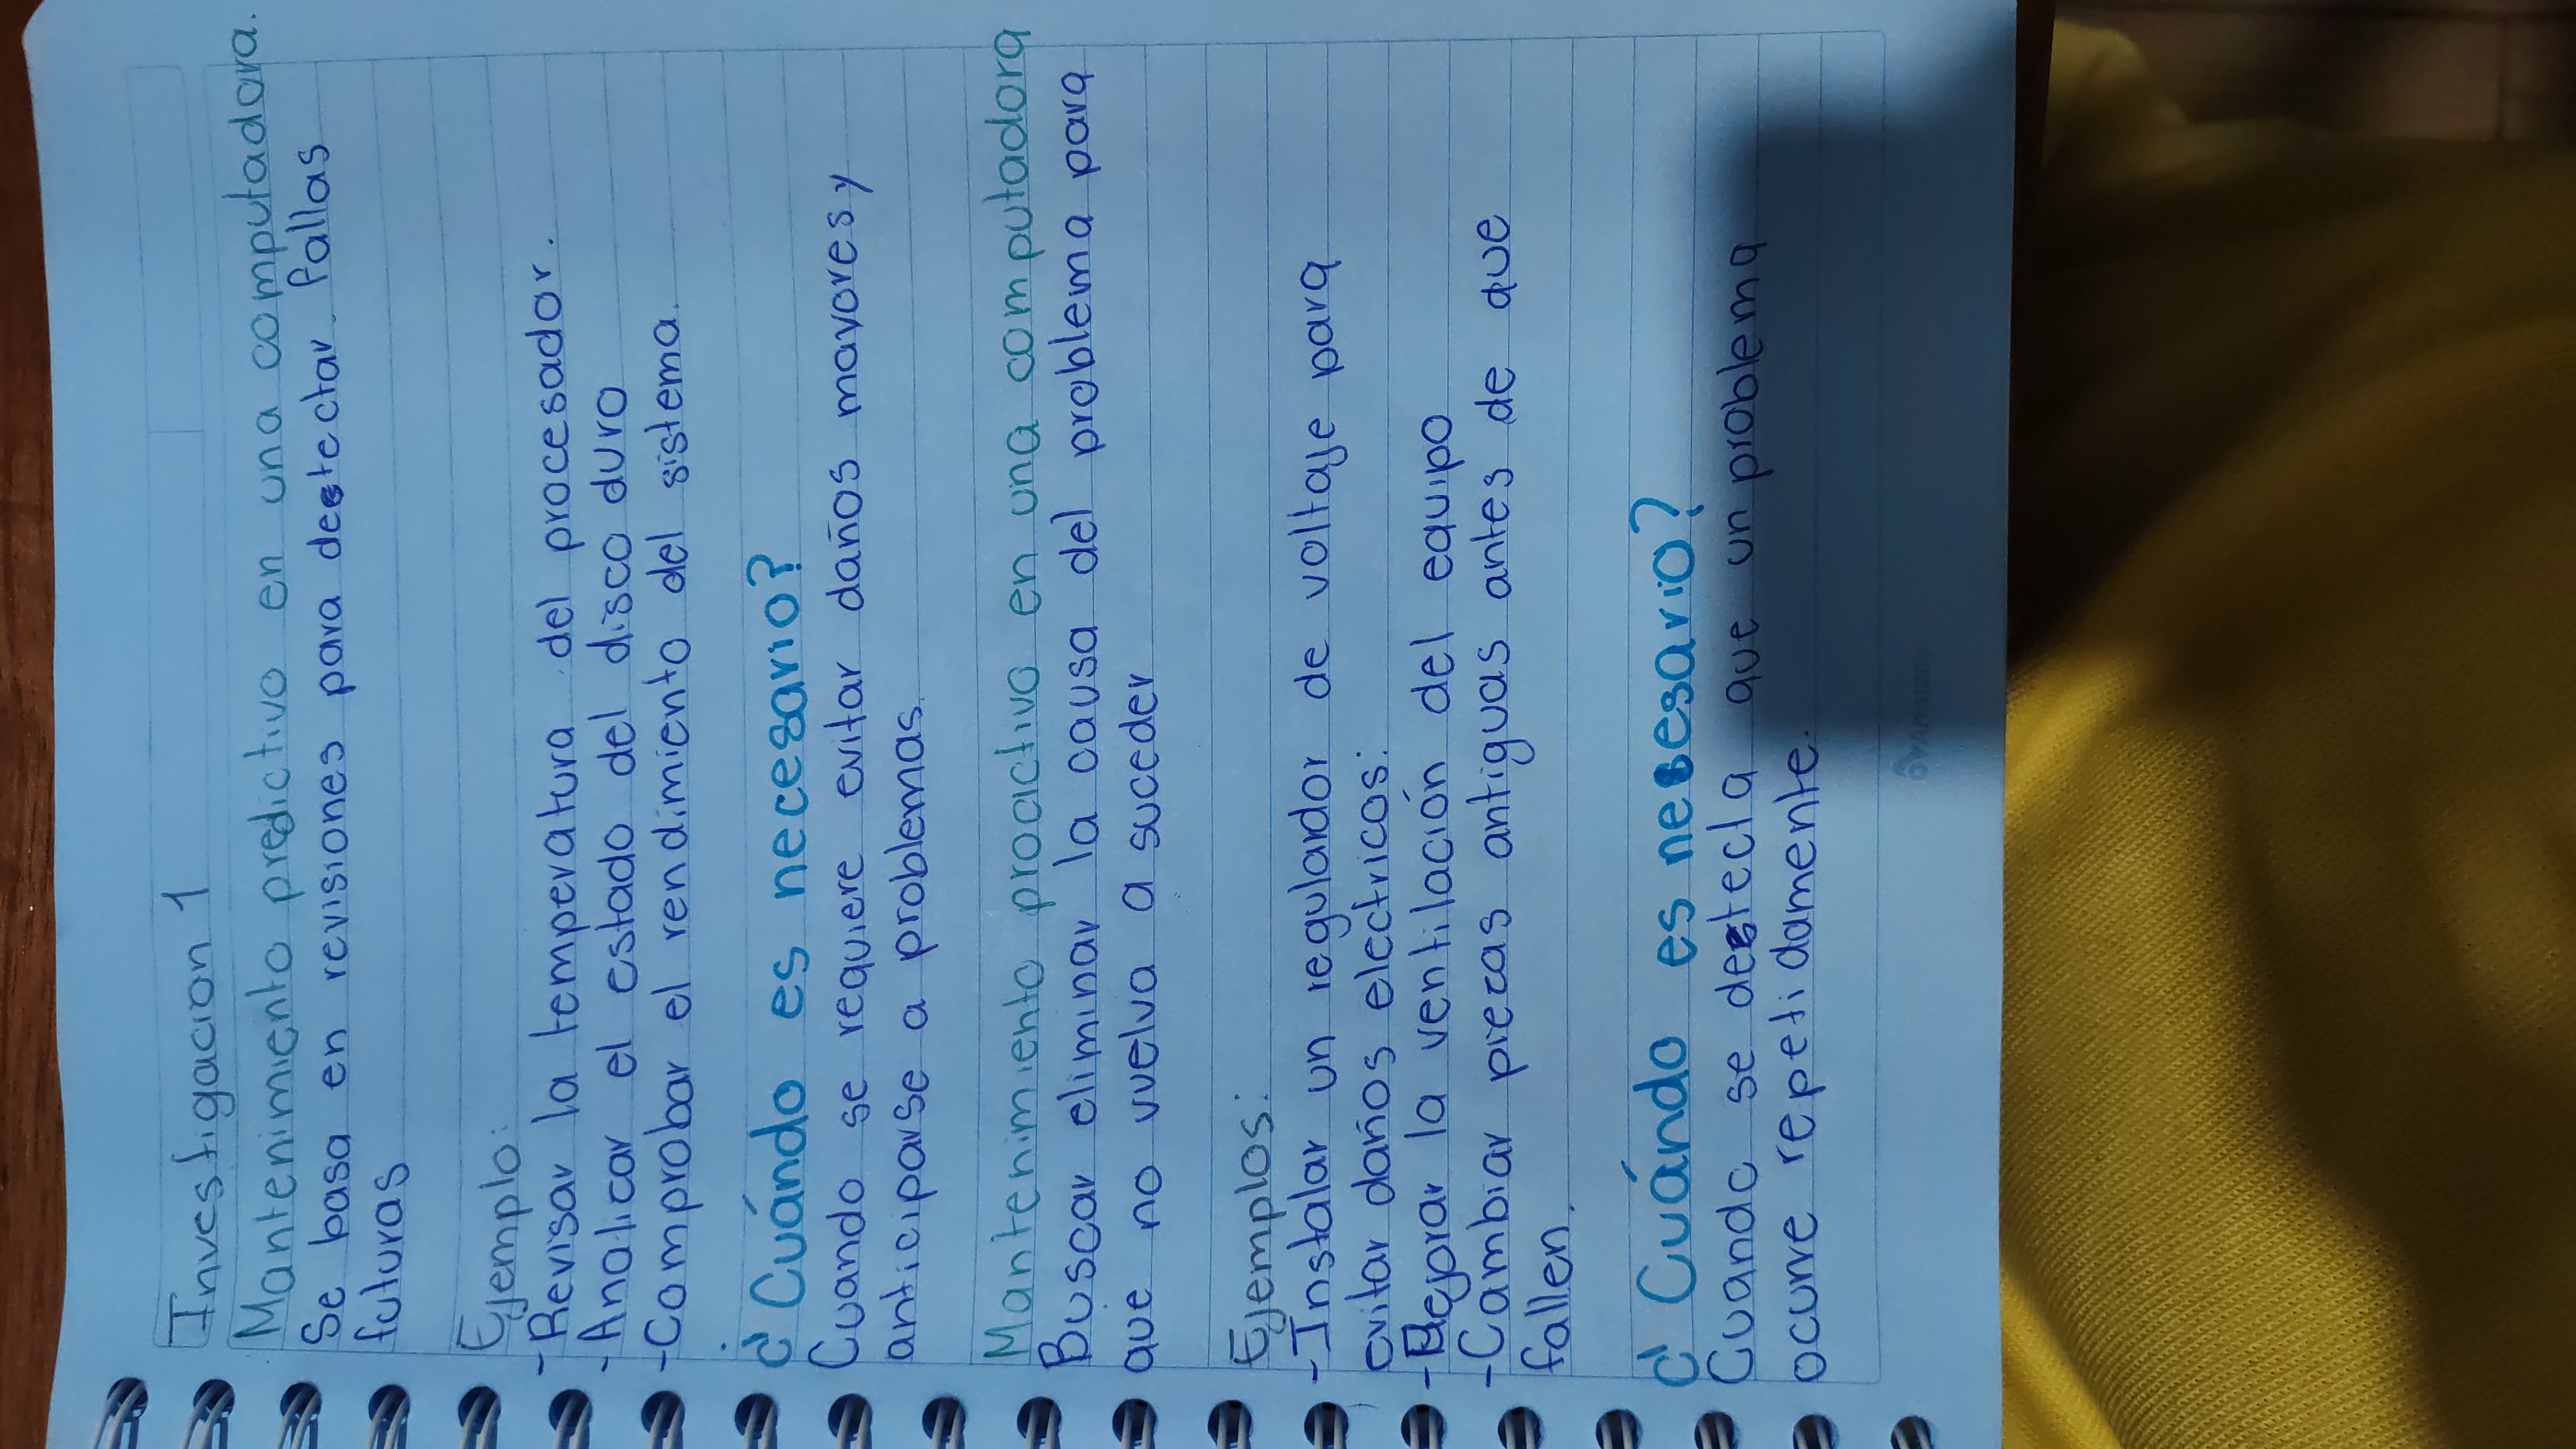 Investigacion 1
Mantenimiento predictivo en una computadora.
Se basa en revisiones para detectar fallas
futuras
Ejemplo:
-Revisar la temperatura del procesador.
-Analicar el estado del disco duro
-Comprobar el rendimiento del sistema.
¿Cuándo es necesario?
Cuando se requiere evitar daños mayores y
anticiparse a problemas.
Mantenimiento proactivo en una computadora
Buscar eliminar la causa del problema para
que no vuelva a suceder
Ejemplos:
-Instalar un regulardor de voltaje para
evitar daños electricos.
-Mejorar la ventilación del equipo
-Cambiar piezas antiguas antes de que
fallen.
¿Cuándo es nesesario?
Cuando se detecta que un problema
ocurre repetidamente.